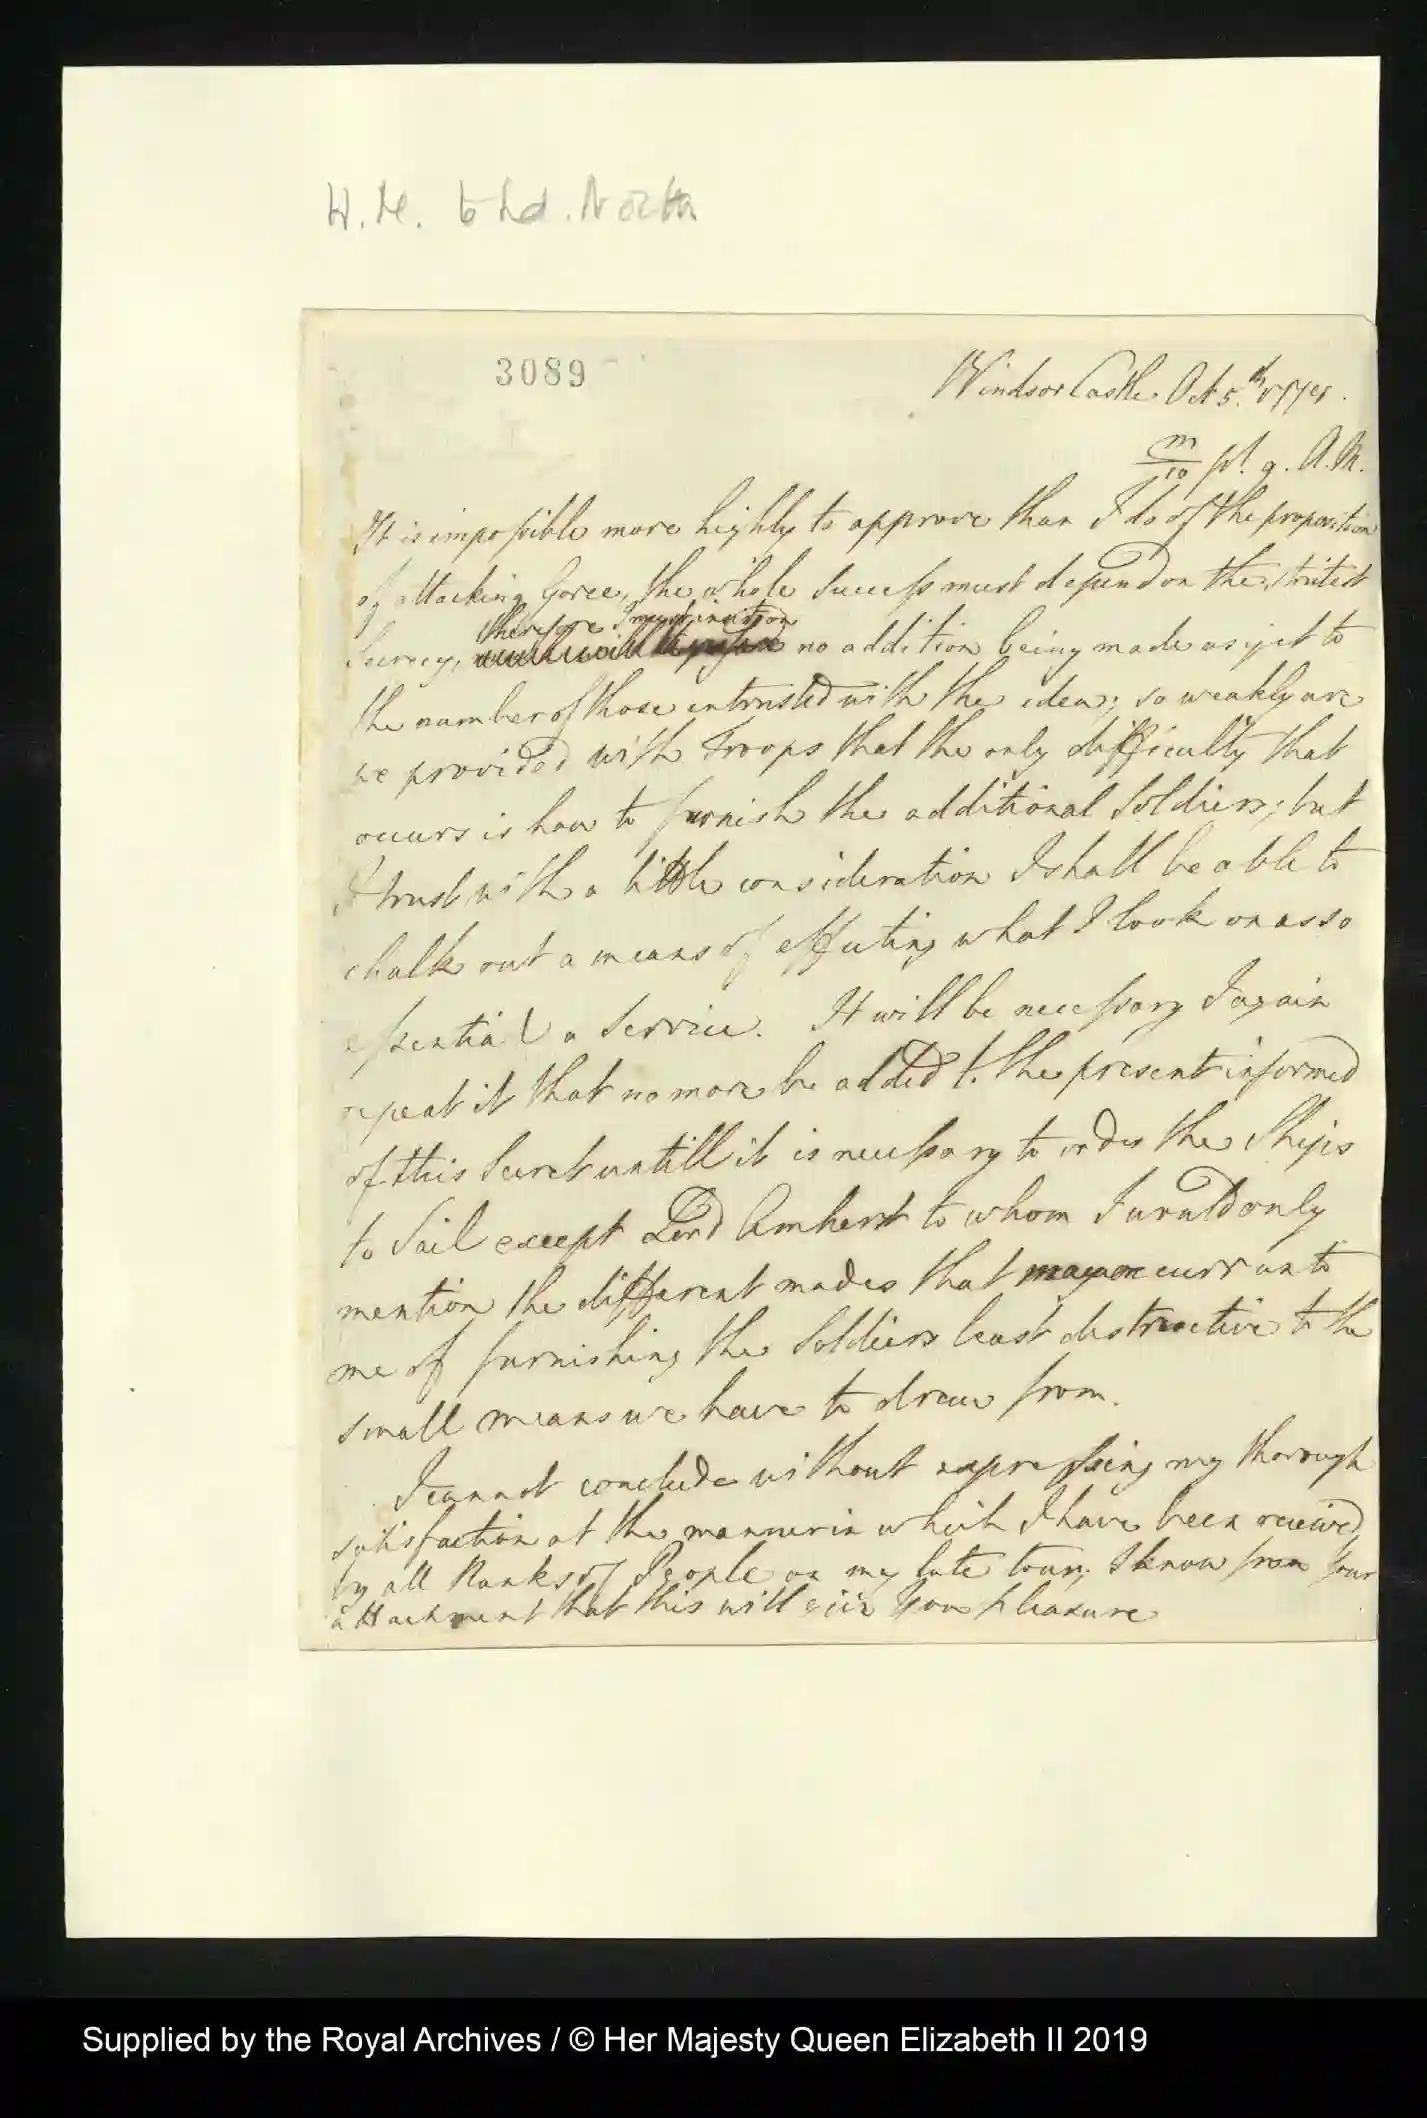 H.M. to Ld. North
3089
Windsor Castle Oct 5.th 1778.
m/10 pt. 9. A.M.
It is impossible more highly to approve than I do of the proposition
of attacking Goree, the whole Success must depend on the stritest
therefore I must insist on
Secrecy, no addition being made as yet to
the number of those entrusted with the idea; so weakly are
we provided with Troops that the only difficulty that
occurs is how to furnish the additional Soldiers; but
I trust with a little consideration I shall be able to
chalk out a means of effecting what I look on as so
essential a Service. It will be necessary I again
repeat it that no more be added to the present informed
of this Secret untill it is necessary to order the Ships
to Sail except Lord Amherst to whom I would only
mention the different modes that may occurr unto
me of furnishing the Soldiers least destructive to the
small means we have to draw from.
I cannot conclude without expressing my thorough
satisfaction at the manner in which I have been received
by all Ranks of People on my late tour; I know from Your
attachment that this will give You pleasure
Supplied by the Royal Archives / © Her Majesty Queen Elizabeth II 2019